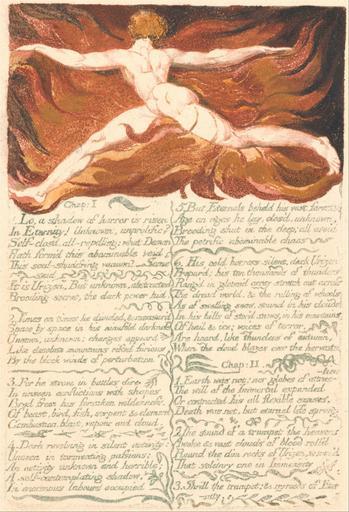 Chap: I
1. Lo, a shadow of horror is risen
In Eternity! Unknown, unprolific?
Self-closd, all-repelling: what Demon
Hath form'd this abominable void
This soul-shudd'ring vacuum?—Some said
"It is Urizen", But unknown, abstracted
Brooding secret, the dark power hid.
2. Times on times he divided, & measur'd
Space by space in his ninefold darkness
Unseen, unknown: changes appeard
Like desolate mountains rifted furious
By the black winds of perturbation
3. For he strove in battles dire
In unseen conflictions with shapes
Bred from his forsaken wilderness,
Of beast, bird, fish, serpent & element
Combustion, blast, vapour and cloud.
4. Dark revolving in silent activity:
Unseen in tormenting passions;
An activity unknown and horrible;
A self-contemplating shadow,
In enormous labours occupied
5. But Eternals beheld his vast forests
Age on ages he lay, clos'd, unknown,
Brooding shut in the deep; all avoid
The petrific abominable chaos
6. His cold horrors silent, dark Urizen
Prepar'd: his ten thousands of thunders
Rang'd in gloom'd array stretch out across
The dread world, & the rolling of wheels
As of swelling seas, sound in his clouds
In his hills of stor'd snows, in his mountains
Of hail & ice; voices of terror,
Are heard, like thunders of autumn,
When the cloud blazes over the harvests
Chap: II.
1. Earth was not: nor globes of attraction
The will of the Immortal expanded
Or contracted his all flexible senses.
Death was not, but eternal life sprung
2. The sound of a trumpet the heavens
Awoke & vast clouds of blood roll'd
Round the dim rocks of Urizen, so nam'd
That solitary one in Immensity
3. Shrill the trumpet: & myriads of Eter-
nity,